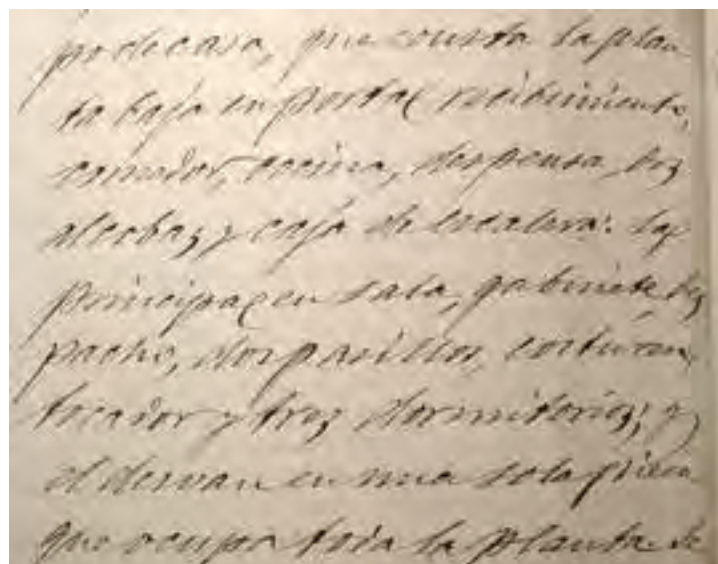 po de casa, que consta la plan
ta baja en portal recibimiento,
comedor, cocina, despensa, tres
alcobas y caja de escalera: la
principal en sala, gabinete des
pacho, dos pasillos, costurero
tocador y tres dormitorios; y
el desvan en una sola pieza
que ocupa toda la planta de